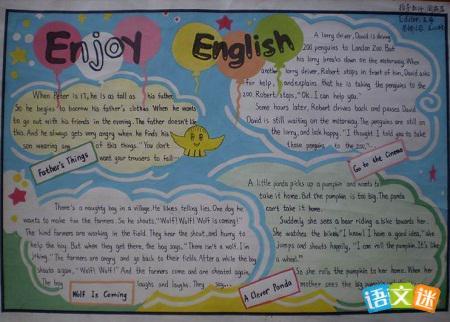 Enjoy English
When Peter is 17, he is as tall as his father.
So he begins to borrow his father's clothes When he wants
to go out with his friends in the evening. The father doesn't like
this. And he always gets very angry when he finds his
son wearing any of his things. "You don't
want your trousers to fall
Father's Things
A lorry driver, David is driving
200 penguins to London Zoo. But
his lorry breaks down on the motorway. When
another lorry driver, Robert stops in front of him, David asks
for help, and explains that he is taking the penguins to the
zoo. Robert stops, "Ok. I can help you."
Some hours later, Robert drives back and passes David.
David is still waiting on the motorway. The penguins are still on
the lorry, and look happy. "I thought I told you to take
those penguins to the zoo,"
Go to the Cinema
There's a naughty boy in a village. He likes telling lies. One day he
wants to make fun the farmers. So he shouts, "Wolf! Wolf! Wolf is coming!"
The kind farmers are working in the field. They hear the shout, and hurry to
help the boy. But when they get there, the boy says, "There isn't a wolf. I'm
joking." The farmers are angry and go back to their fields. After a while the boy
shouts again, "Wolf! Wolf!" And the farmers come and are cheated again.
The boy laughs and laughs. They say
Wolf Is Coming
A little panda picks up a pumpkin and wants to
take it home. But the pumpkin is too big. The panda
can't take it home.
Suddenly she sees a bear riding a bike towards her.
She watches the bike. "I know! I have a good idea," she
jumps and shouts happily, "I can roll the pumpkin. It's like
a wheel."
So she rolls the pumpkin to her home. When her
mother sees the big pumpkin
A Clever Panda
语文迷